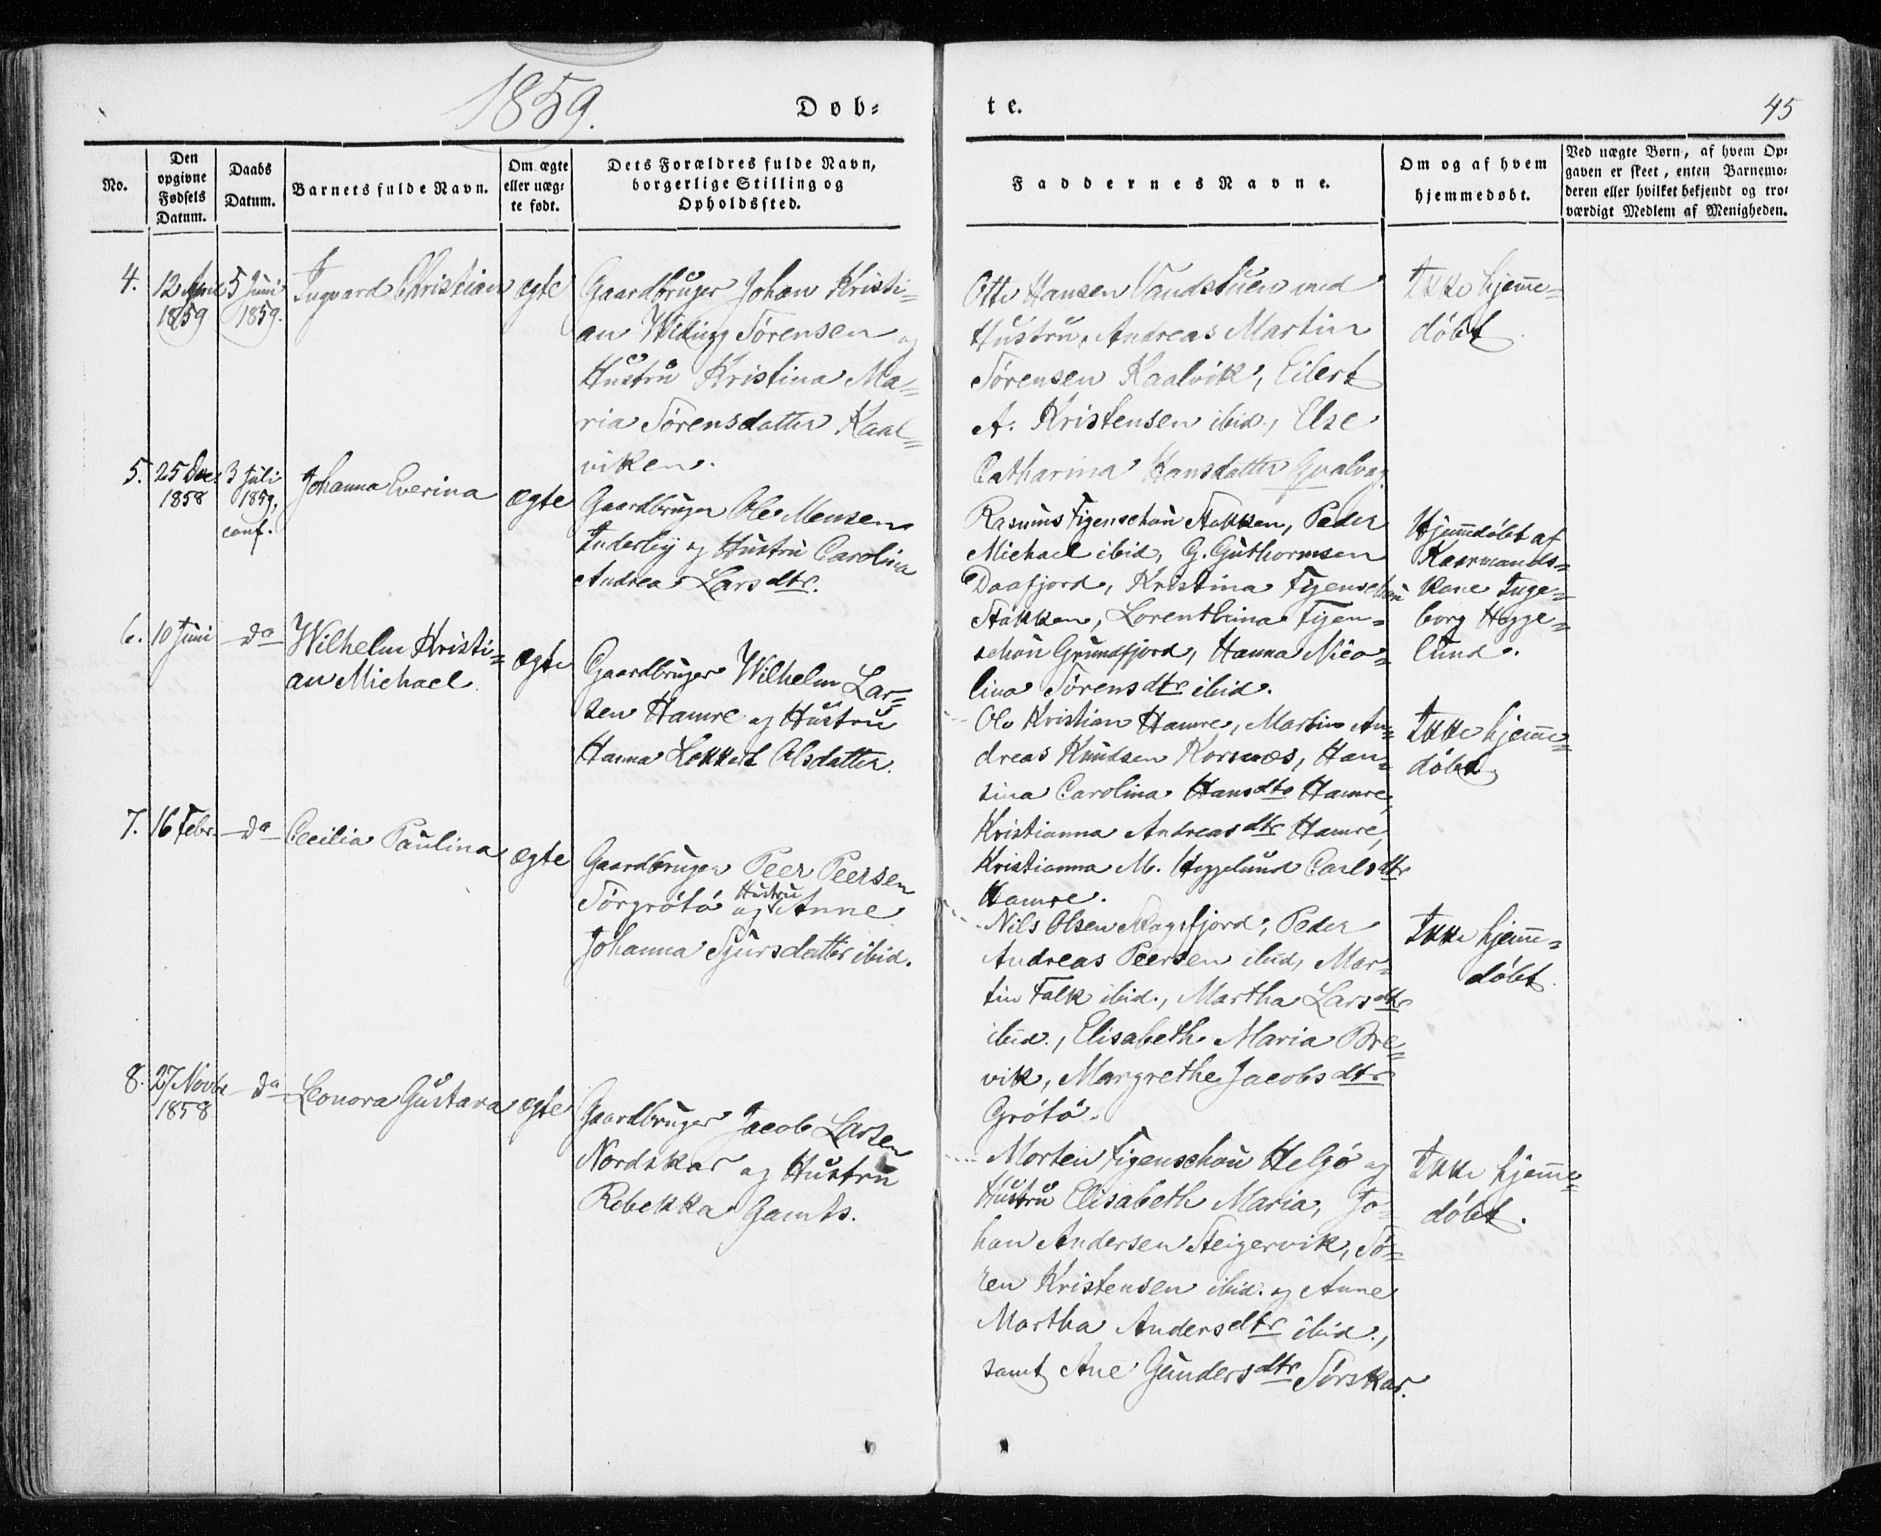 1859.
Døb-
te.
45
No.
Den
opgivne
Fødsels
Datum.
Daabs
Datum.
Barnets fulde Navn.
Om ægte
eller uæg-
te født.
Dets Forældres fulde Navn,
borgerlige Stilling og
Opholdssted.
Faddernes Navne.
Om og af hvem
hjemmedøbt.
Ved uægte Børn, af hvem Op-
gaven er skeet, enten Barnemo-
deren eller hvilket bekjendt og tro-
værdigt Medlem af Menigheden.
4.
12 April
1859
5 Juni
1859.
Ingvard Christian
ægte
Gaardbruger Johan Kristi-
an Widing Sørensen og
Hustru Kristina Ma-
ria Sørensdatter Kaal-
viken.
Otto Hansen Vandstuen med
Hustru, Andreas Martin
Sørensen Kaalvik, Eilert
A. Kristensen ibid., Else
Catharina Hansdatter Qvalvag
Ikke hjemme-
døbt.
5.
25 Dec:
1858
3 Juli
1859.
conf.
Johanna Everina
ægte
Gaardbruger Ole Monsen
Inderby og Hustru Carolina
Andrea Larsdtr.
Rasmus Figenschau Stakken, Peder
Michael ibid, G. Guthormsen
Daafjord, Kristina Figenschau
Stakken, Lorenthina Figen-
schau Grundfjord, Hanna Nico-
lina Sørensdtr ibid.
Hjemmdøbt af
Kaarmands-
kone Inge-
borg Hegge-
lund.
6.
10 Juni
do
Wilhelm Kristi-
an Michael.
ægte
Gaardbruger Wilhelm Lar-
sen Hamre og Hustru
Hanna Lokkert Olsdatter.
Ole Kristian Hamre, Martin An-
dreas Knudsen Kornæs, Han-
sina Carolina Hansdtr Hamre,
Kristianna Andreasdtr Hamre,
Kristianna M. Heggelund Carlsdtr
Hamre.
Ikke hjemme-
døbt.
7.
16 Febr.
do
Cecilia Paulina
ægte
Gaardbruger Peer Peersen
Sørgrøtø og Hustru Anne
Johanna Sjursdatter ibid.
Nils Olsen Skogsfjord, Peder
Andreas Peersen ibid, Mar-
tin Falk ibid., Martha Larsdtr
ibid., Elisabeth Maria Bre-
vik, Margrethe Jacobsdtr
Grøtø.
Ikke hjemme-
døbt.
8.
27 Novbr
1858
do
Leonora Gustava
ægte
Gaardbruger Jacob Larsen
Nordskar og Hustru
Rebekka Gamts.
Morten Figenschau Helgø og
Hustru Elisabeth Maria, Jo-
han Andersen Steigervik, Sø-
ren Kristensen ibid. og Anne
Martha Andersdtr ibid.,
samt Ane Gundersdtr Sørskar.
Ikke hjemme-
døbt.